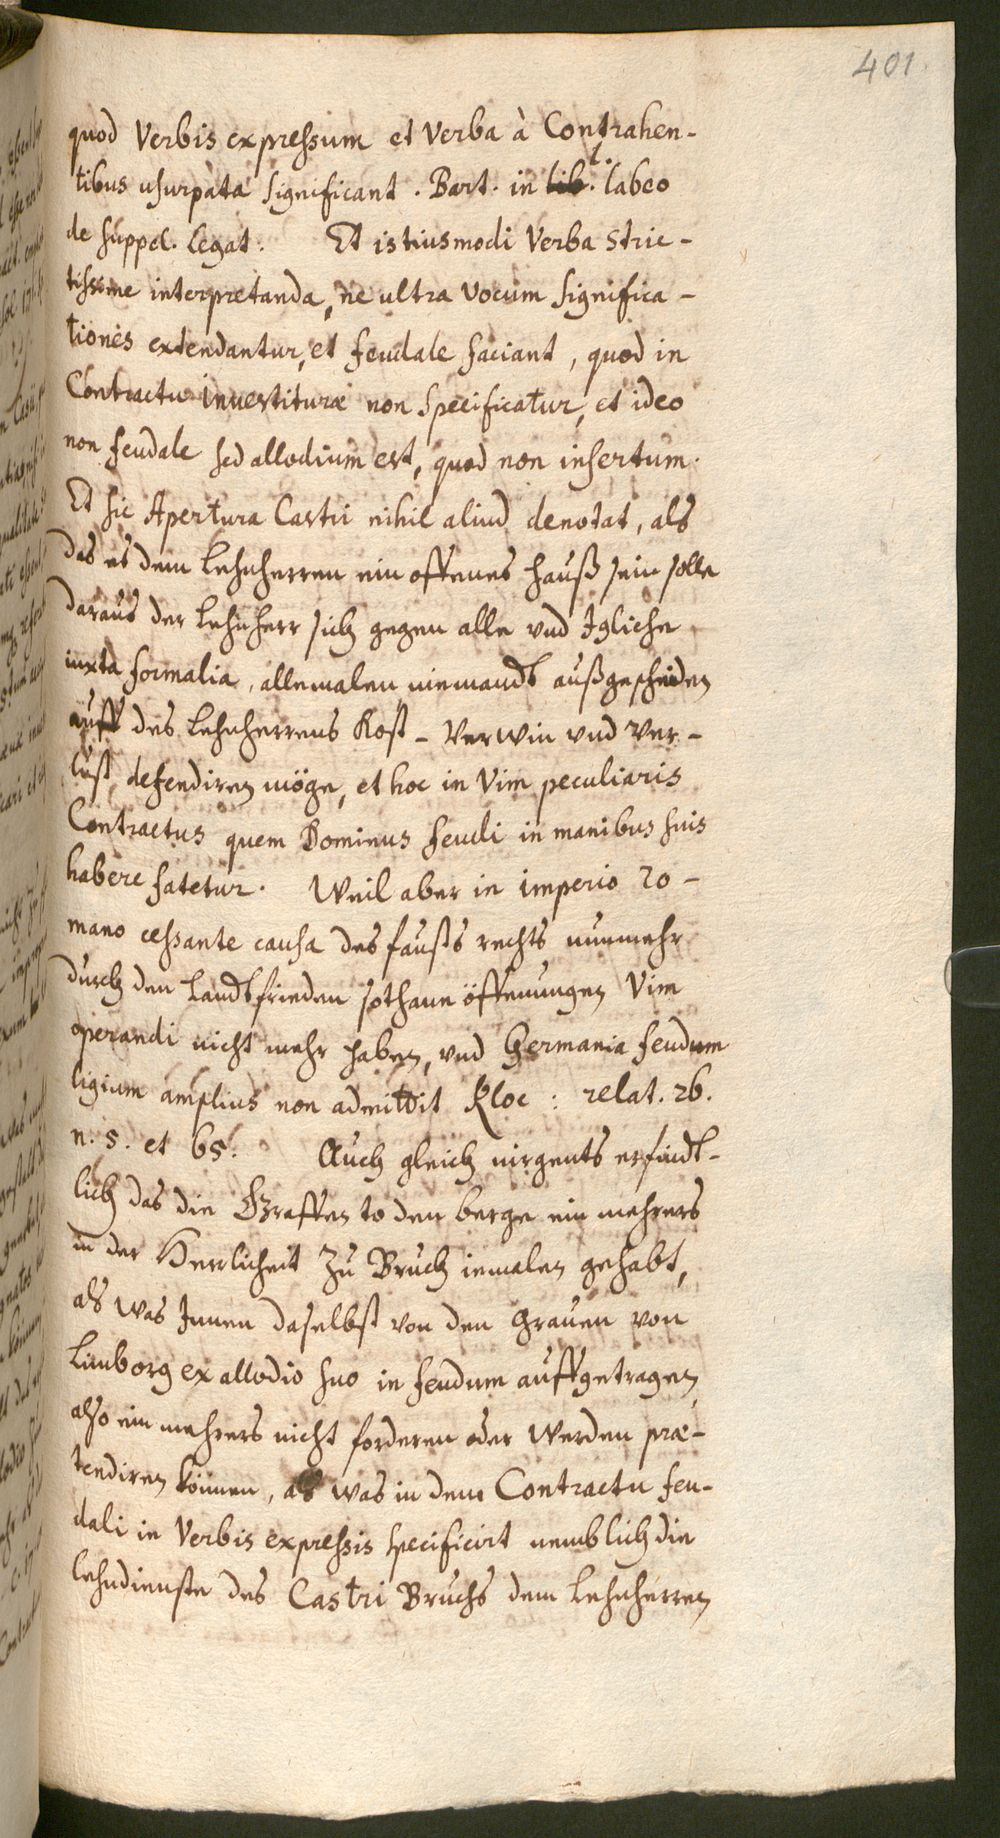 401.
quod Verbis expressum et Verba à Contrahen-
tibus usurpata significant. Bart. in lib. l. labeo
de suppel. legat. Et istiusmodi Verba Stric-
tissime interpretanda, ne ultra Vocum significa-
tiones extendantur, et feudale faciant, quod in
Contractu investituræ non specificatur, et ideo
non feudale sed allodium est, quod non insertum.
Et sic Apertura Castri nihil aliud denotat, als
das es dem Lehnherren ein offenes hauß sein solle
daraus der Lehnherr sich gegen alle vnd Igliche
iuxta formalia, allemalen niemandt außgescheiden
auff des Lehnherrens Kost - Verwin vnd Ver-
lust defendiren möge, et hoc in Vim peculiaris
Contractus quem Dominus feudi in manibus suis
habere fatetur. Weil aber in imperio ro-
mano cessante causa des fausts rechts nunmehr
durch den Landtfrieden sothane öffenungen Vim
operandi nicht mehr haben, vnd Germania feudum
ligium amplius non admittit Kloc: relat. 26.
n. 5. et 65. Auch gleich nirgents erfindt-
lich das die Graffen to den berge ein mehrers
in der Herrlicheit zu Bruch iemalen gehabt,
als was Innen daselbst von den Grauen von
Limborg ex allodio suo in feudum auffgetragen,
also ein mehrers nicht forderen oder werden præ-
tendiren können, als was in dem Contractu feu-
dali in Verbis expressis specificirt nemblich die
Lehndienste des Castri Bruchs dem Lehnherren